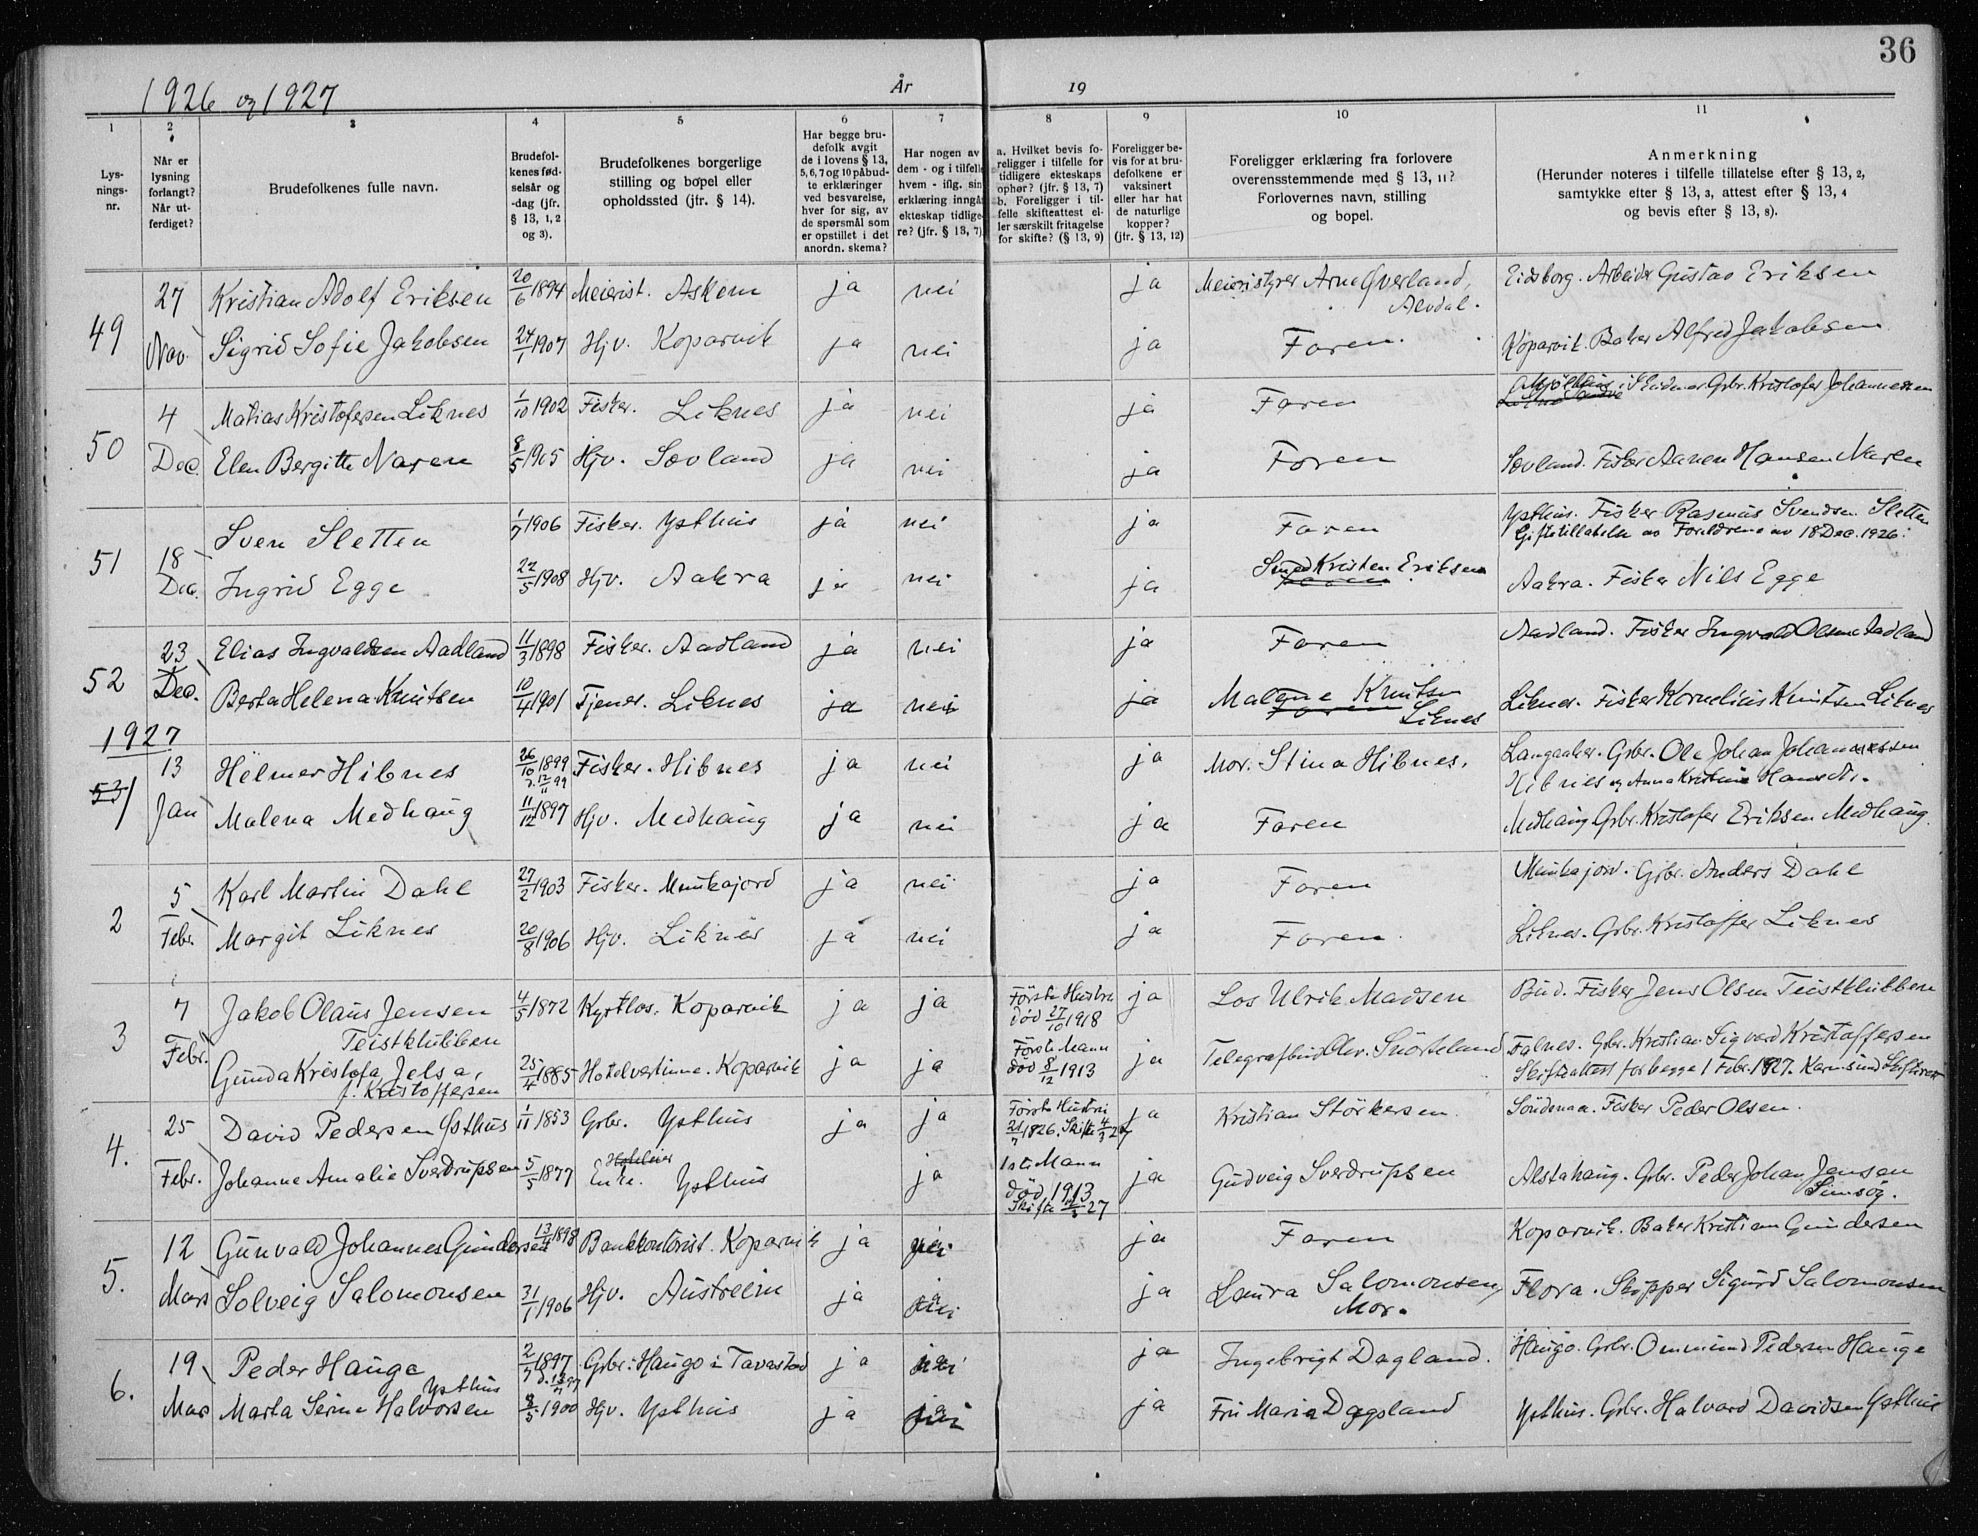 36
1926 og 1927
År
19
1
2
3
4
5
6
7
8
9
10
11
Lys-
nings-
nr.
Når er
lysning
forlangt?
Når ut-
ferdiget?
Brudefolkenes fulle navn.
Brudefol-
kenes fød-
selsår og
-dag (jfr.
§ 13, 1, 2
og 3).
Brudefolkenes borgerlige
stilling og bopel eller
opholdssted (jfr. § 14).
Har begge bru-
defolk avgit
de i lovens § 13,
5, 6, 7 og 10 påbud-
te erklæringer
ved besvarelse,
hver for sig, av
de spørsmål som
er opstillet i det
anordn. skema?
Har nogen av
dem - og i tilfelle
hvem - iflg. sin
erklæring inngå
ekteskap tidlige-
re? (jfr. § 13, 7)
a. Hvilket bevis fo-
religger i tilfelle for
tidligere ekteskaps
ophør? (jfr. § 13, 7)
b. Foreligger i til-
felle skifteattest el-
ler særskilt fritagelse
for skifte? (§ 13, 9)
Foreligger be-
vis for at bru-
defolkene er
vaksinert
eller har hat
de naturlige
kopper?
(jfr. § 13, 12)
Foreligger erklæring fra forlovere
overensstemmende med § 13, 11?
Forlovernes navn, stilling
og bopel.
Anmerkning
(Herunder noteres i tilfelle tillatelse efter § 13, 2,
samtykke efter § 13, 3, attest efter § 13, 4
og bevis efter § 13, 8).
49
27 Kristian Adolf Eriksen 20/6 1894 Meierist. Askem ja nei ja Meieristyrer Arne Gverland, Alvdal. Eidsborg. Arbeider Gustav Eriksen
Nov. Sigrid Sofie Jakobsen 24/1 1907 Hjv. Koparvik ja nei ja Faren. Koparvik. Baker Alfred Jakobsen
50
4 Matias Kristofersen Liknes 1/10 1902 Fisker. Liknes ja nei ja Faren i Skudnes Grbr. Kristofer Johannessen
Dec. Elen Bergitte Naren 8/5 1905 Hjv. Sævland ja nei ja Faren Sævland. Fisker Aanen Hansen Naren
51
18 Sven Sletten 1/7 1906 Fisker. Ysthus ja nei ja Faren Ysthus. Fisker Rasmus Svendsen Sletten
Giftetillatelse av Foreldrene av 18 Dec. 1926.
Dec. Ingrid Egge 22/5 1908 Hjv. Aakra ja nei ja Smed Kristen Eriksen Faren Aakra. Fisker Nils Egge
52
23 Elias Ingvaldsen Aadland 11/3 1898 Fisker. Aadland ja nei ja Faren Aadland. Fisker Ingvald Olsen Aadland
Dec. Berta Helena Knutsen 10/4 1901 Tjener. Liknes ja nei ja Malene Knutsen Faren Liknes Liknes. Fisker Kornelius Knutsen Liknes
1927
53 1
13 Helmer Hibnes 26/10 1899 d. 12/11 99 Fisker. Hibnes ja nei ja Mor. Stina Hibnes. Langaaker. Grbr. Ole Johan Johannessen
Hibnes og Anna Kristine Hansdtr.
Jan Malena Medhaug 11/12 1897 Hjv. Medhaug ja nei ja Faren Medhaug Grbr. Kristofer Eriksen Medhaug.
2
5 Karl Martin Dahl 27/2 1903 Fisker. Munkajord ja nei ja Faren Munkajord. Grbr. Anders Dahl
Febr. Margit Liknes 20/8 1906 Hjv. Liknes ja nei ja Faren. Liknes. Grbr. Kristoffer Liknes
3
7 Jakob Olaus Jensen 4/5 1872 Kystlos. Koparvik ja ja Første Hustru død 27/10 1918 ja Los Ulrik Madsen Bud. Fisker Jens Olsen Teistklubben
Teistklubben
Febr. Gunda Kristofa Jelsa, 25/4 1885 Hotelvertinne. Koparvik ja ja Første Mann død 8/12 1913 ja Telegrafbud Olav. Snörteland Falnes. Grbr. Kristian Sigvard Kristoffersen
f. Kristoffersen Skifteattest for begge 1 Febr. 1927. Karmsund Skifterett
4.
25 David Pedersen Ysthus 1/11 1853 Grbr. Ysthus ja ja Første Hustru 21/7 1826. Skifte 4/3 27 ja Kristian Störkersen. Söndenaa. Fisker Peder Olsen.
Febr. Johanne Amalie Sverdrupsen 5/5 1877 Enke. Ysthus ja 1ste Mann død 1913 Skifte 12/3 27 ja Gudveig Sverdrupsen Alstahaug. Grbr. Peder Johan Jensen
5.
12 Gunvald Johannes Gundersen 13/4 1898 Bankkontorist. Koparvik ja nei ja Faren Koparvik. Baker Kristian Gundersen
Mars Solveig Salomonsen 31/1 1906 Hjv. Austreim ja nei ja Laura Salomonsen, Mor. Flora. Skipper Sigurd Salomonsen
6.
19 Peder Hauge 2/7 1897 Grbr. Haugo i Tavastad ja nei ja Ingebrigt Dagland. Haugo. Grbr. Ommund Pedersen Hauge
Ysthus
Mars Marta Serine Halvorsen 8/5 1900 Hjv. Ysthus ja nei ja Fru Maria Dagsland Ysthus. Grbr. Halvard Davidsen Ysthus